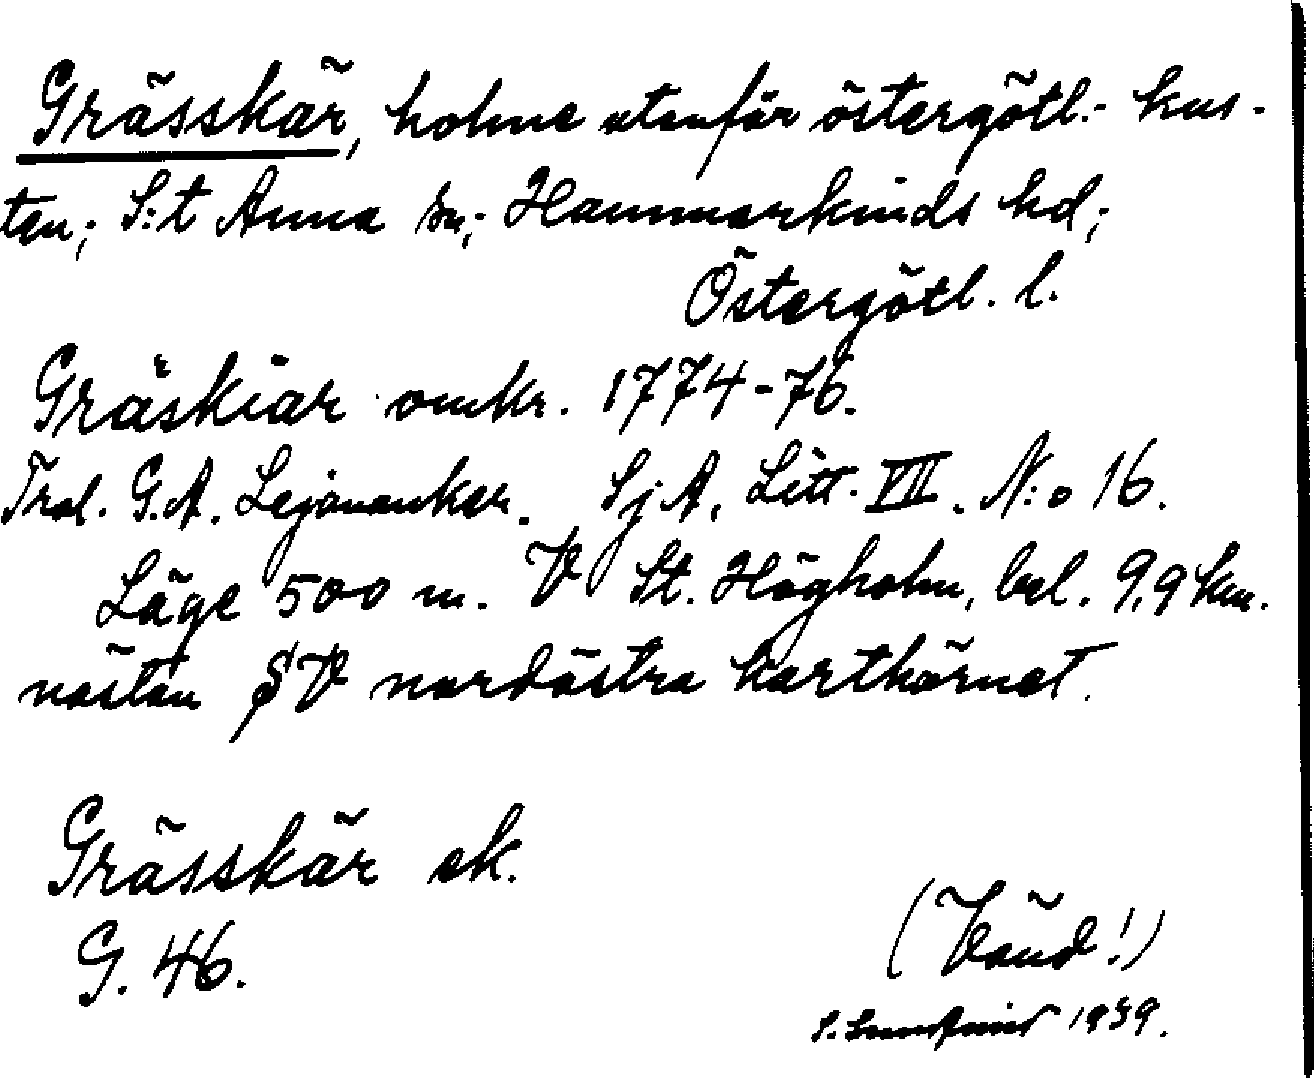 Grässkär, holme utanför östergötl.- kus-
ten; S:t Anna sn; Hammarkinds hd;
Östergötl. l.
Gräskiär omkr. 1774-76.
Trol. G.A. Lejonanker. SjA, Litt. VII. N:o 16.
Läge 500 m. V St. Högholm, bel. 9,9 km.
nästan SV nordöstra karthörnet.
Grässkär ek.
G. 46.
(Vänd!)
S. 1939.